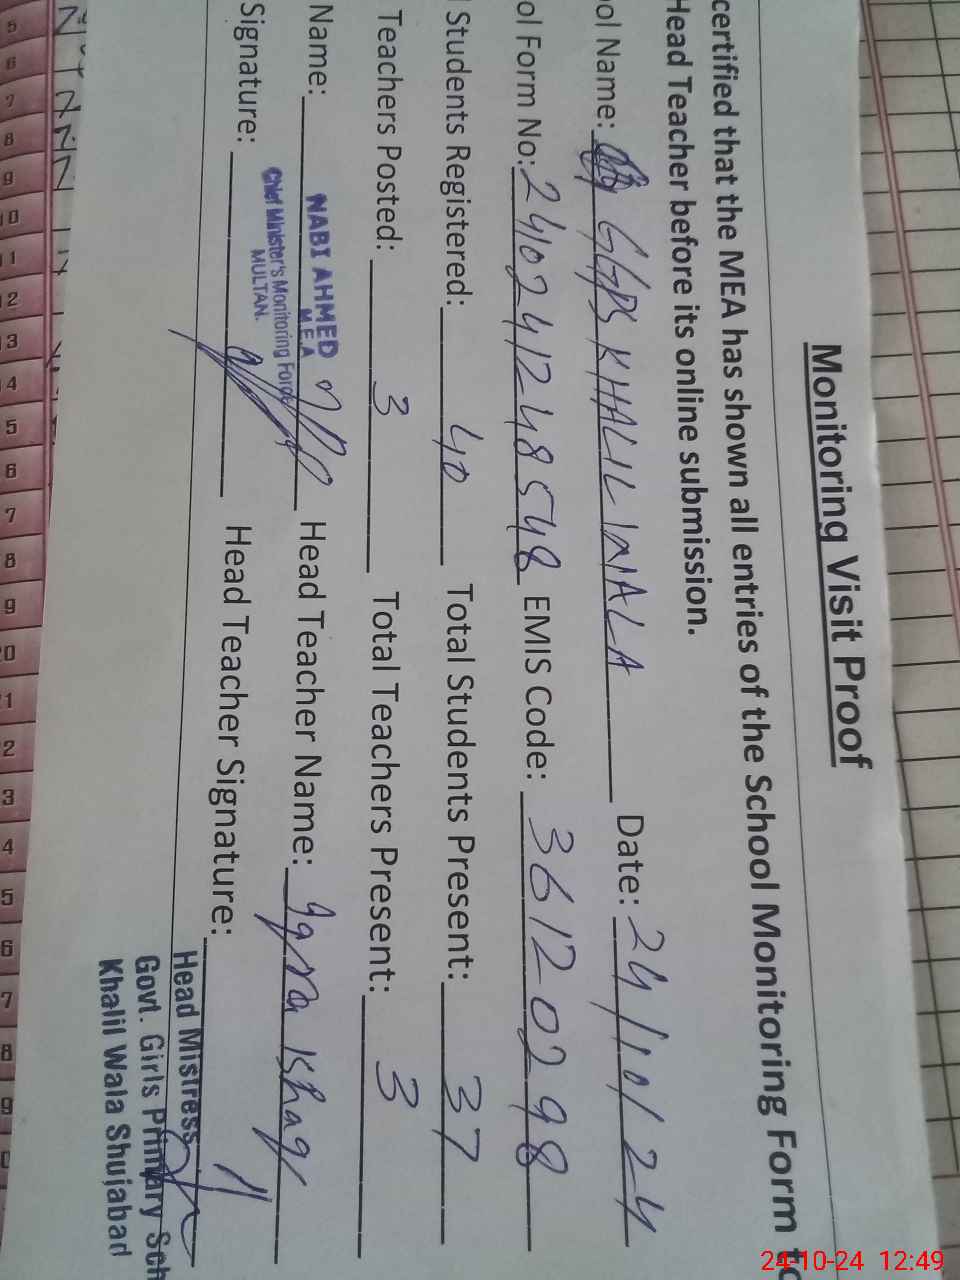 Monitoring Visit Proof
certified that the MEA has shown all entries of the School Monitoring Form to
Head Teacher before its online submission.
ool Name: GGPS KHALIL WALA Date: 24/10/24
ol Form No: 2410241248548 EMIS Code: 36120298
Students Registered: 40 Total Students Present: 37
Teachers Posted: 3 Total Teachers Present: 3
Name: NABI AHMED Head Teacher Name: Iqra Ishaq
M.E.A
Chief Minister's Monitoring Force
MULTAN.
Signature: Head Teacher Signature:
Head Mistress
Govt. Girls Primary Sch
Khalil Wala Shujabad
24-10-24 12:49